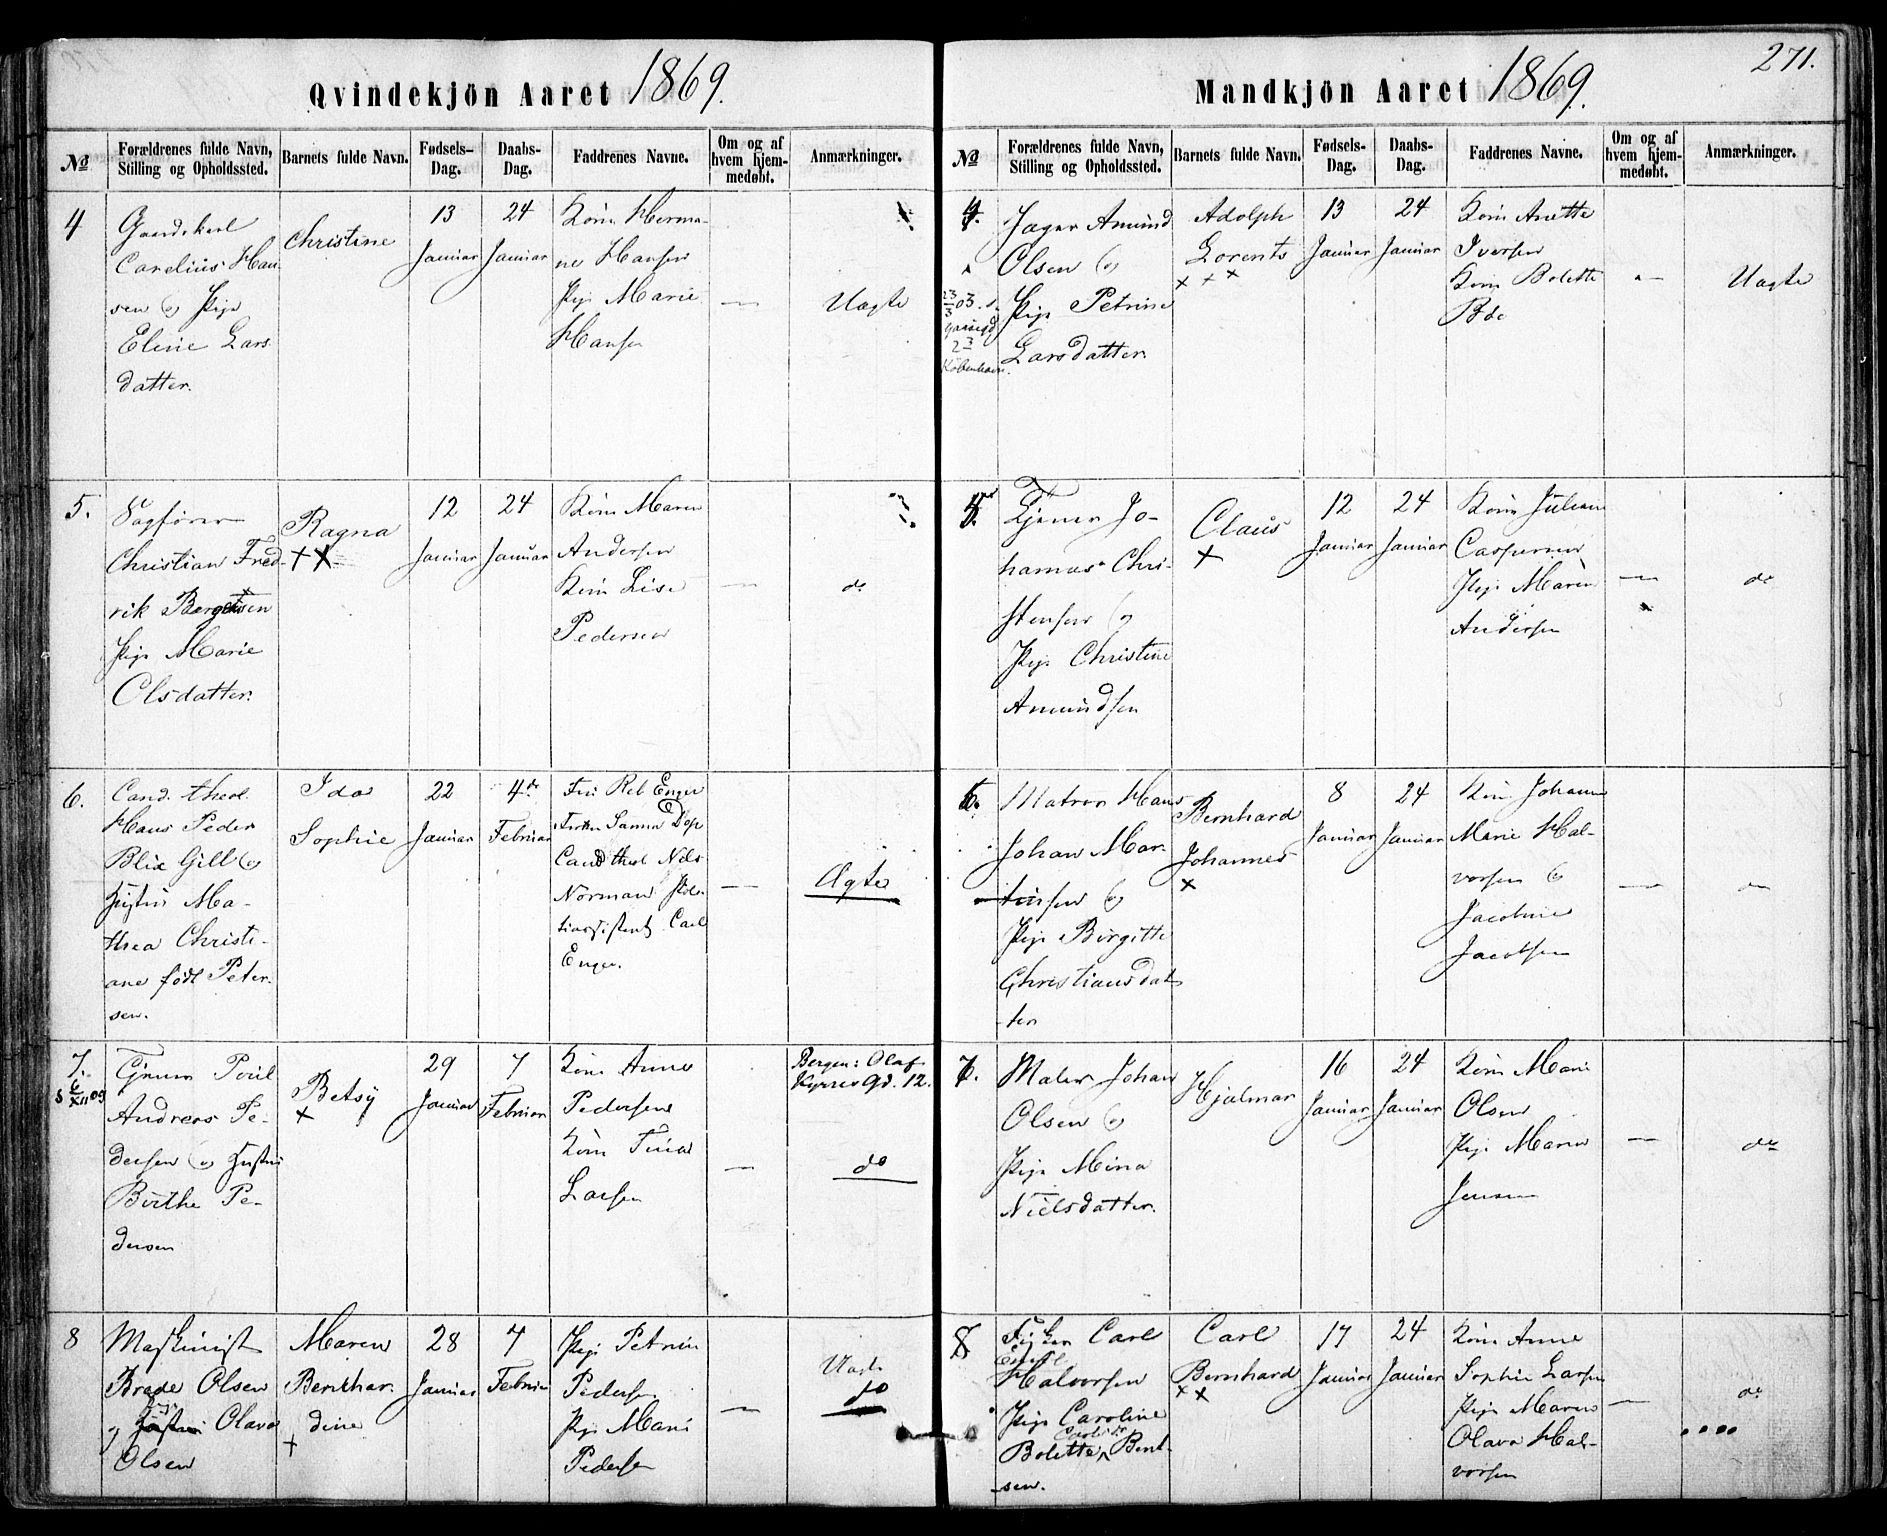 271.
Qvindekjön Aaret 1869.
№
Forældrenes fulde Navn, Stilling og Opholdssted.
Barnets fulde Navn.
Fødsels-Dag.
Daabs-Dag.
Faddrenes Navne.
Om og af hvem hjem-medøbt.
Anmærkninger.
4
Gaardskarl
Carelius Han
sen og Pige
Eline Lars
datter.
Christine
13
Januar
24
Januar
Kone Herma-
ne Hansen
Pige Marie
Hansen
—
Uægte
5.
Sagfører
Christian Fred-
rik
Pige Marie
Olsdatter.
Ragna
12
Januar
24
Januar
Kone Maren
Andersen
Kone Lise
Pedersen
—
do
6.
Cand. theol.
Hans Peder
Blix Gill og
Hustru Ma-
thea Christi-
ane født Peter-
sen.
Ida
Sophie
22
Januar
4de
Februar
Enger
Cand theol Nils
Norman
Carl
Enger.
—
Ægte
7.
Andreas Pe-
dersen og Hustru
Birthe Pe-
dersen
Betsy
29
Januar
7
Februar
Kone Anne
Pedersen
Kone Trine
Larsen
—
Bergen: Olaf
Kyrres Gd. 12.
do
8
Maskinist
Brede Olsen
og Olava
Olsen
Maren
Bernhar-
dine
28
Januar
7
Februar
Pige Petrine
Pedersen
Pige Marie
Pedersen
—
Uægte
Mandkjön Aaret 1869.
№
Forældrenes fulde Navn, Stilling og Opholdssted.
Barnets fulde Navn.
Fødsels-Dag.
Daabs-Dag.
Faddrenes Navne.
Om og af hvem hjem-medøbt.
Anmærkninger.
4.
København.
Jager Amund
Olsen og
Pige Petrine
Larsdatter.
Adolph
Lorents
13
Januar
24
Januar
Kone Anette
Iversen
Kone Bolette
Boe
—
Uægte
5.
Tjener Jo-
hannes Chri-
stensen og
Pige Christine
Amundsen
Claus
12
Januar
24
Januar
Kone Juliane
Caspersen
Pige Maren
Andersen
—
do
6.
Matros Hans
Johan Mar-
tinsen og
Pige Birgitte
Christiansdat
ter
Bernhard
Johannes
8
Januar
24
Januar
Kone Johanne
Marie Hal-
vorsen og
Jacobine
Jacobsen
—
do
7.
Maler Johan
Olsen og
Pige Mina
Nielsdatter.
Hjalmar
16
Januar
24
Januar
Kone Marie
Olsen
Pige Maren
Jensen
—
do
8
Carl
Halvorsen
Pige Caroline
Bolette Bent-
sen.
Carl
Bernhard
17
Januar
24
Januar
Kone Anne
Sophie Larsen
Pige Maren
Olava Hal-
vorsen
—
do